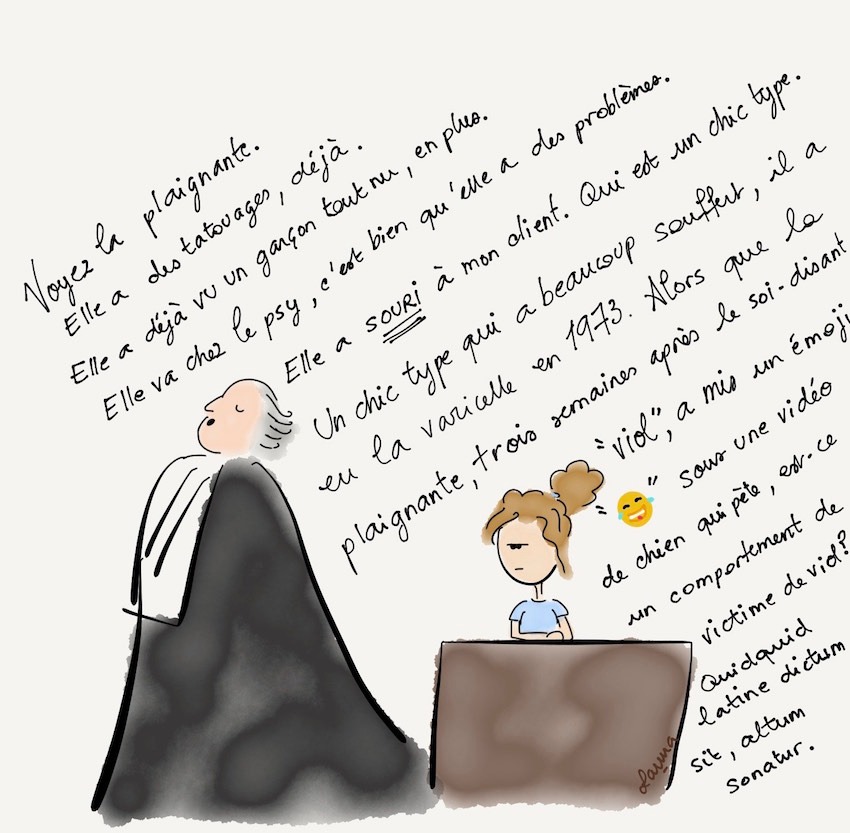 Voyez la plaignante.
Elle a des tatouages, déjà.
Elle a déjà vu un garçon tout nu, en plus.
Elle va chez le psy, c'est bien qu'elle a des problèmes.
Elle a SOURI à mon client. Qui est un chic type.
Un chic type qui a beaucoup souffert, il a
eu la varicelle en 1973. Alors que la
plaignante, trois semaines après le soi-disant
"viol", a mis un émoji
"😂" sous une vidéo
de chien qui pète, est-ce
un comportement de
victime de viol?
Quidquid
latine dictum
sit, altum
sonatur.
Louna